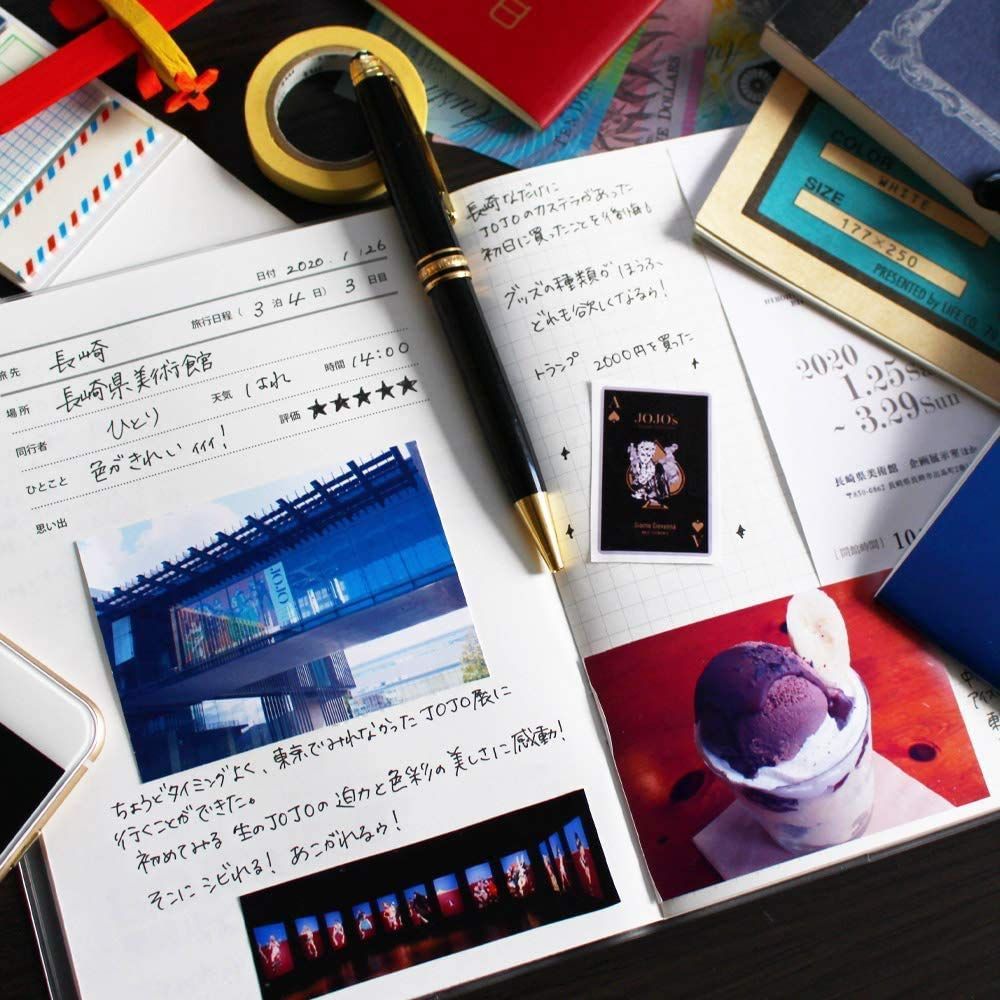 日付 2020. 1. 26
旅行日程( 3 泊 4 日) 3 日目
旅先 長崎
場所 長崎県美術館
同行者 ひとり 天気 はれ 時間 14:00
ひとこと 色がきれい イイ! 評価 ★★★★★
思い出
JOJO
ちょうどタイミングよく、東京でみれなかった JOJO展に
行くことができた。
初めてみる 生のJOJOの 迫力と色彩の美しさに感動!
そこに シビれる! あこがれるゥ!
長崎なだけに
JOJOのカステラがあった
初日に買ったことを後悔!
グッズの種類がほうふ、
どれも欲しくなるゥ!
トランプ 2000円を買った
A
JOJO's
Giorno Giovanna
A
2020
1.25sat
~ 3.29Sun
長崎県美術館 企画展示室
〒850-0862 長崎県長崎市出島町2番
[開館時間] 10:
COLOR
WHITE
SIZE
177×250
PRESENTED by LIFE CO.
DOLLARS